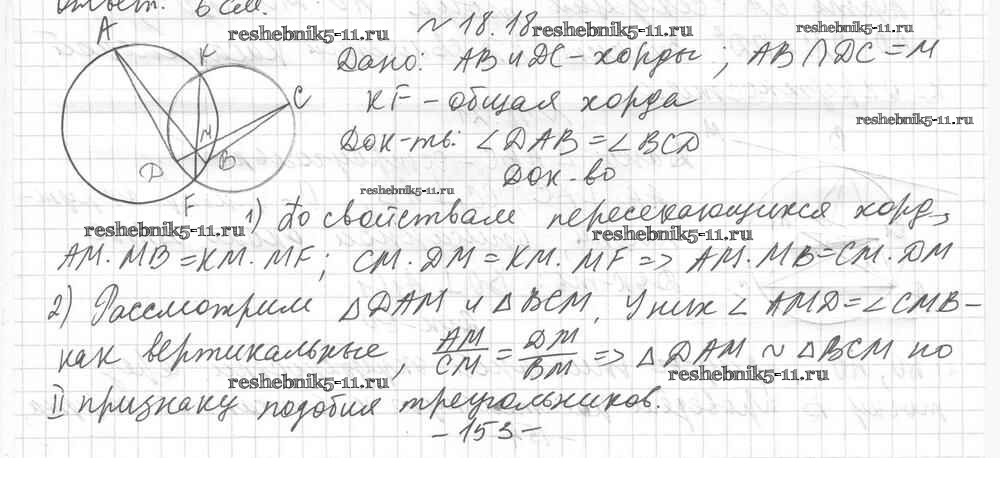 Ответ. 6 см.
№ 18.18
reshebnik5-11.ru reshebnik5-11.ru reshebnik5-11.ru
A
K
C
M
D
B
F
Дано: AB и DC - хорды ; AB ∩ DC = M
KF - общая хорда
reshebnik5-11.ru
Док-ть: ∠DAB = ∠BCD
Док-во
reshebnik5-11.ru
1) По свойствам пересекающихся хорд,
reshebnik5-11.ru reshebnik5-11.ru
AM · MB = KM · MF ; CM · DM = KM · MF => AM · MB = CM · DM
2) Рассмотрим △DAM и △BCM, У них ∠AMD = ∠CMB -
как вертикальные, AM/CM = DM/BM => △DAM ~ △BCM по
reshebnik5-11.ru reshebnik5-11.ru
II признаку подобия треугольников.
- 153 -